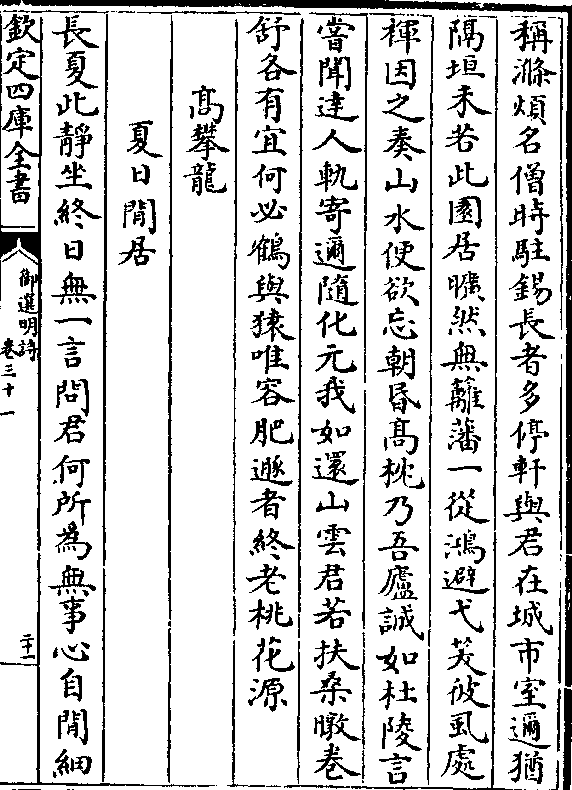 稱滌煩名僧時駐錫長者多停軒與君在城市室邇猶
隔垣未若此園居曠然無籬藩一從鴻避弋笑彼虱處
褌因之奏山水便欲忘朝昏高枕乃吾廬誠如杜陵言
嘗聞達人軌寄邇隨化元我如還山雲君若扶桑暾卷
舒各有宜何必鶴與猿唯容肥遯者終老桃花源
高攀龍
夏日閒居
長夏此靜坐終日無一言問君何所為無事心自閒細
欽定四庫全書
御選明詩
卷三十一
二十一